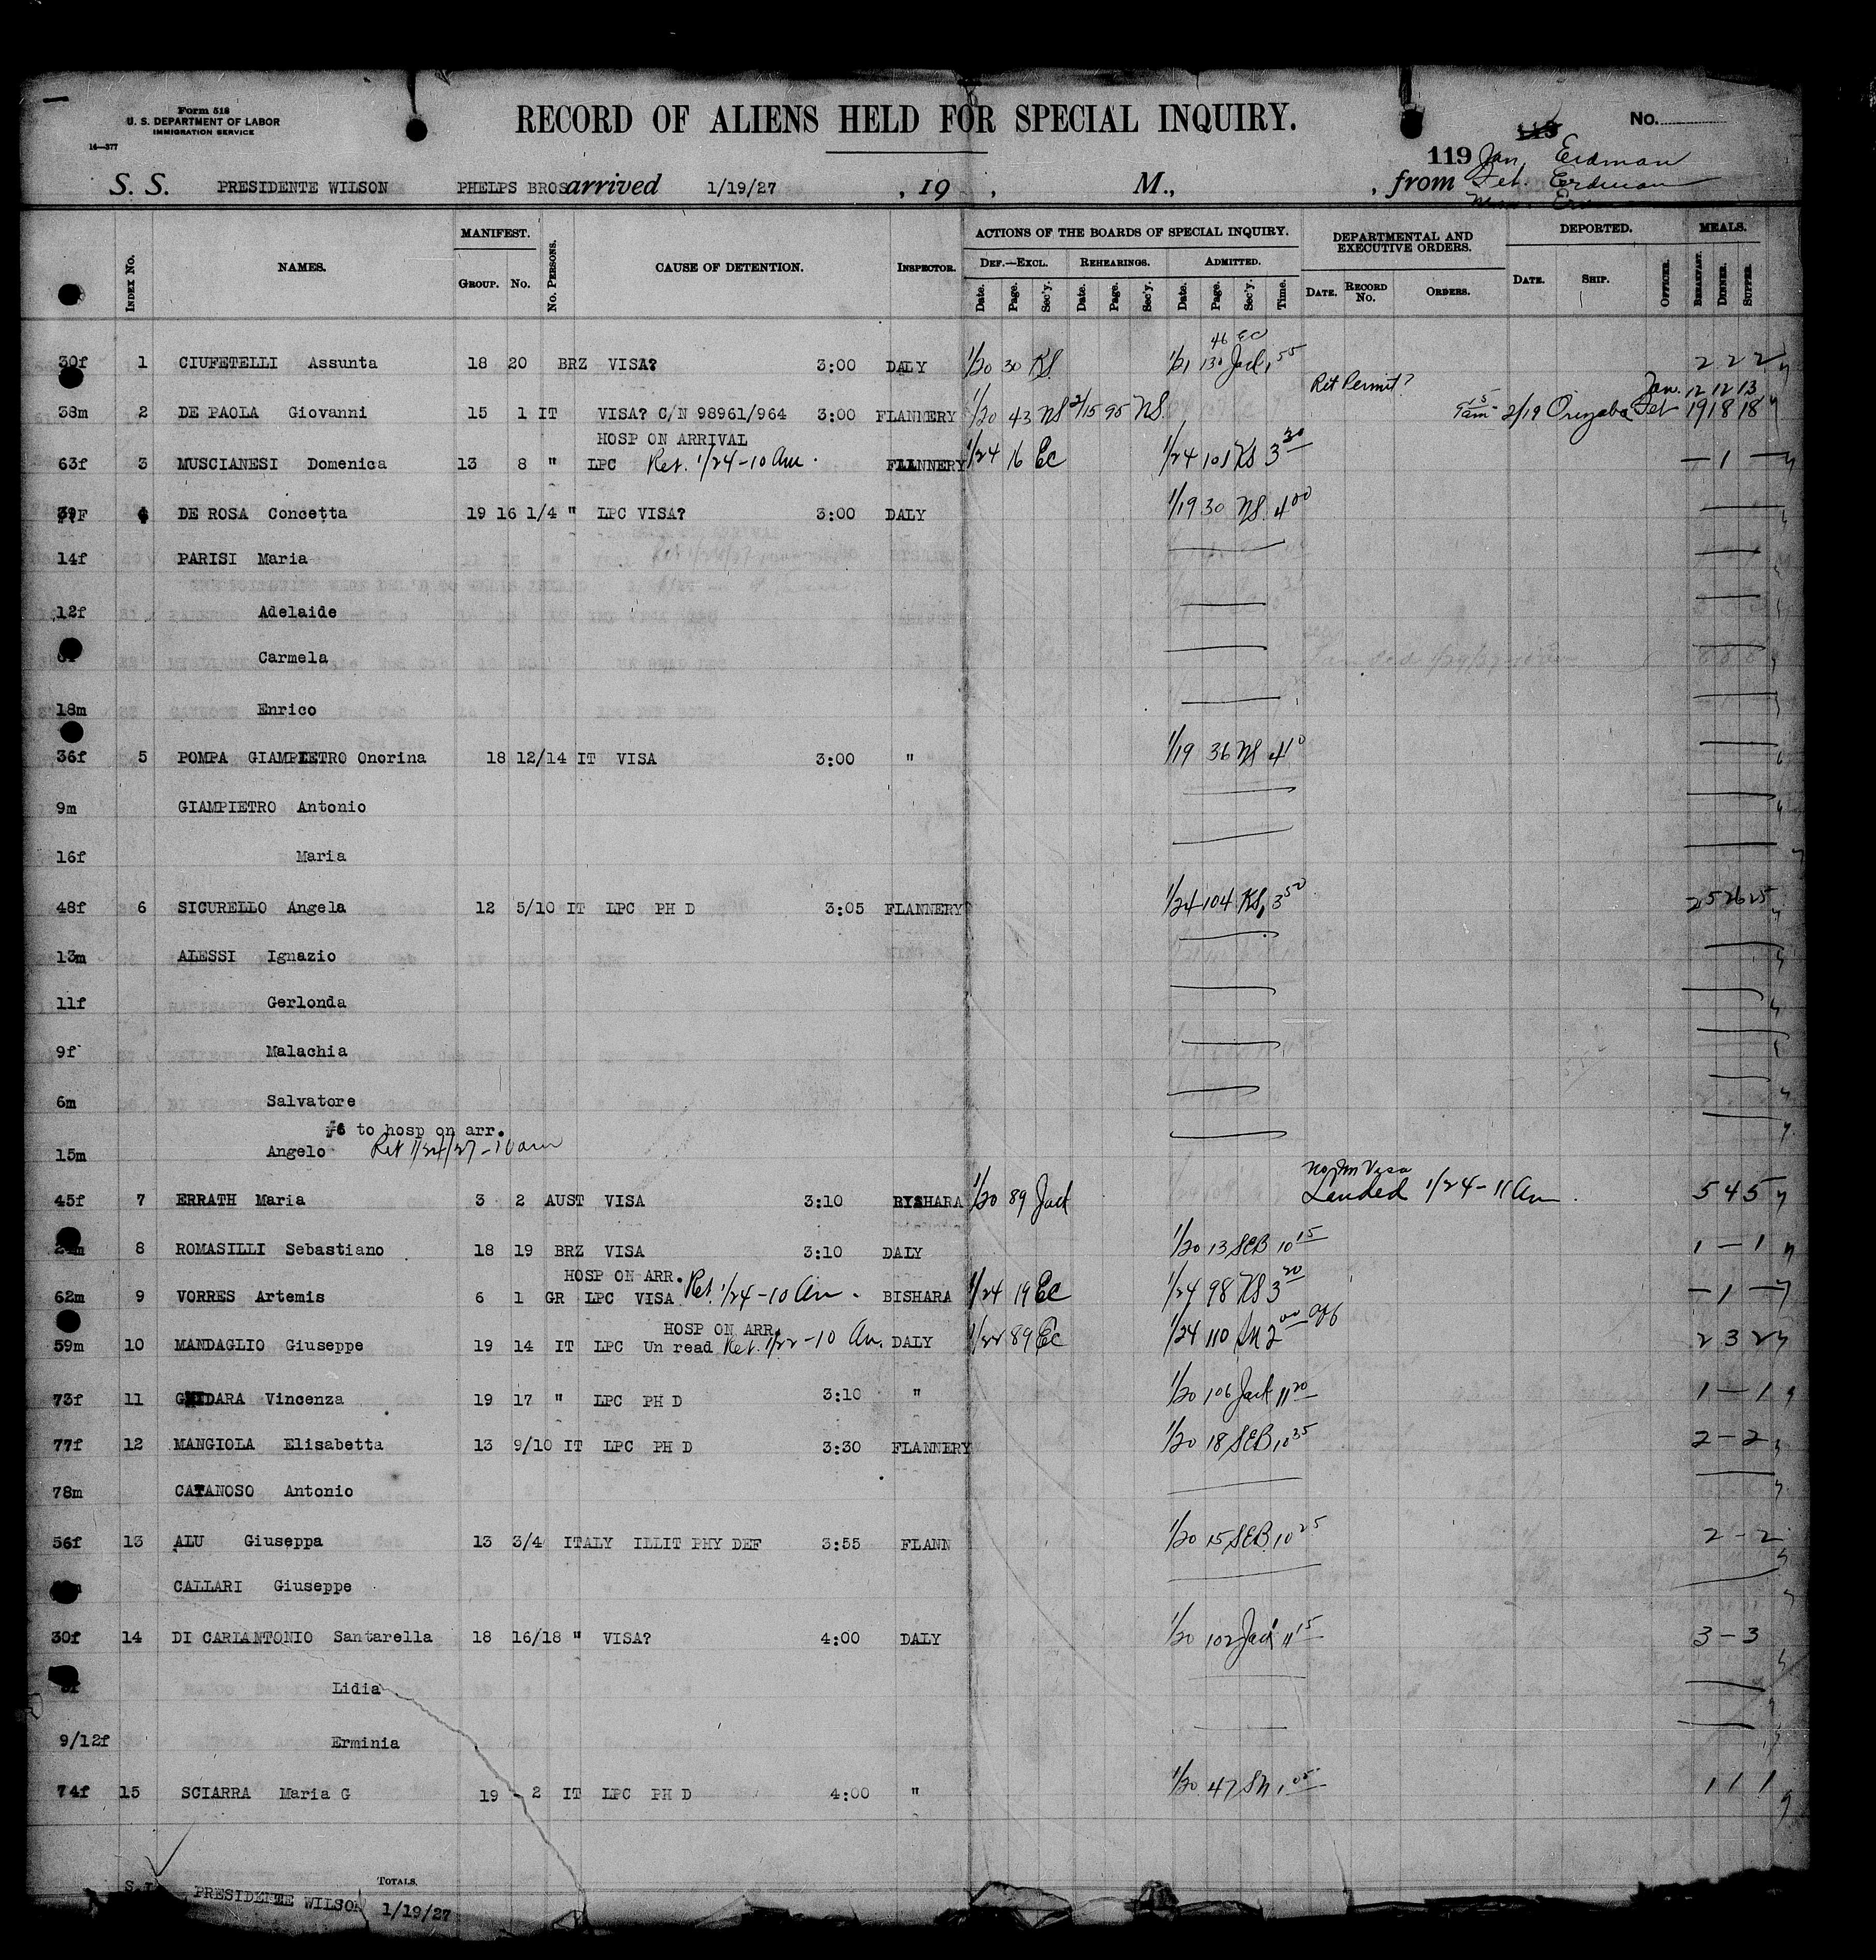 Form 518
U. S. DEPARTMENT OF LABOR
IMMIGRATION SERVICE
14—377
RECORD OF ALIENS HELD FOR SPECIAL INQUIRY.
No.
119 Jan. Erdman
S. S. PRESIDENTE WILSON PHELPS BROS arrived 1/19/27 , 19 , M., , from Feb. Erdman
MANIFEST. ACTIONS OF THE BOARDS OF SPECIAL INQUIRY. DEPARTMENTAL AND EXECUTIVE ORDERS. DEPORTED. MEALS.
Index No. NAMES. Group. No. No. Persons. CAUSE OF DETENTION. Inspector. Def.—Excl. Rehearings. Admitted.
Date. Page. Sec'y. Date. Page. Sec'y. Date. Page. Sec'y. Time. Date. Record No. Orders. Date. Ship. Officer. Breakfast. Dinner. Supper.
46 EC
30f 1 CIUFETELLI Assunta 18 20 BRZ VISA? 3:00 DALY 1/20 30 KS 1/21 130 Jack 1 55 2 2 2
Ret Permit? Jan. 12 12 13
38m 2 DE PAOLA Giovanni 15 1 IT VISA? C/N 98961/964 3:00 FLANNERY 1/20 43 NS 2/15 95 NS 2/19 Orizaba Feb 19 18 18
HOSP ON ARRIVAL
63f 3 MUSCIANESI Domenica 13 8 " LPC Ret. 1/24-10 Am. FLANNERY 1/24 16 EC 1/24 101 KS 3 20 — 1 —
4 DE ROSA Concetta 19 16 1/4 " LPC VISA? 3:00 DALY 1/19 30 NS 4 00
14f PARISI Maria
12f Adelaide
Carmela
18m Enrico
36f 5 POMPA GIAMPIETRO Onorina 18 12/14 IT VISA 3:00 " 1/19 36 NS 4 0
9m GIAMPIETRO Antonio
16f Maria
48f 6 SICURELLO Angela 12 5/10 IT LPC PH D 3:05 FLANNERY 1/24 104 KS 3 50 25 26 25
13m ALESSI Ignazio
11f Gerlonda
9f Malachia
6m Salvatore
#6 to hosp on arr.
15m Angelo Ret 1/24/27-10am
No Im Visa
45f 7 ERRATH Maria 3 2 AUST VISA 3:10 BISHARA 1/20 89 Jack Landed 1/24-11 Am. 5 4 5
8 ROMASILLI Sebastiano 18 19 BRZ VISA 3:10 DALY 1/20 13 SEB 10 15 1 — 1
HOSP ON ARR.
62m 9 VORRES Artemis 6 1 GR LPC VISA Ret. 1/24-10 Am. BISHARA 1/24 19 EC 1/24 98 KS 3 20 — 1 —
HOSP ON ARR.
59m 10 MANDAGLIO Giuseppe 19 14 IT LPC Un read Ret. 1/22-10 Am. DALY 1/22 89 EC 1/24 110 2 00 2 3 2
73f 11 GUIDARA Vincenza 19 17 " LPC PH D 3:10 " 1/20 106 Jack 11 20 1 — 1
77f 12 MANGIOLA Elisabetta 13 9/10 IT LPC PH D 3:30 FLANNERY 1/20 18 SEB 10 35 2 — 2
78m CATANOSO Antonio
56f 13 ALU Giuseppa 13 3/4 ITALY ILLIT PHY DEF 3:55 FLANN 1/20 15 SEB 10 25 2 - 2
CALLARI Giuseppe
30f 14 DI CARLANTONIO Santarella 18 16/18 " VISA? 4:00 DALY 1/20 102 Jack 11 15 3 — 3
Lidia
9/12f Erminia
74f 15 SCIARRA Maria G 19 2 IT LPC PH D 4:00 " 1/20 47 SM 1 05 1 1 1
TOTALS.
PRESIDENTE WILSON 1/19/27